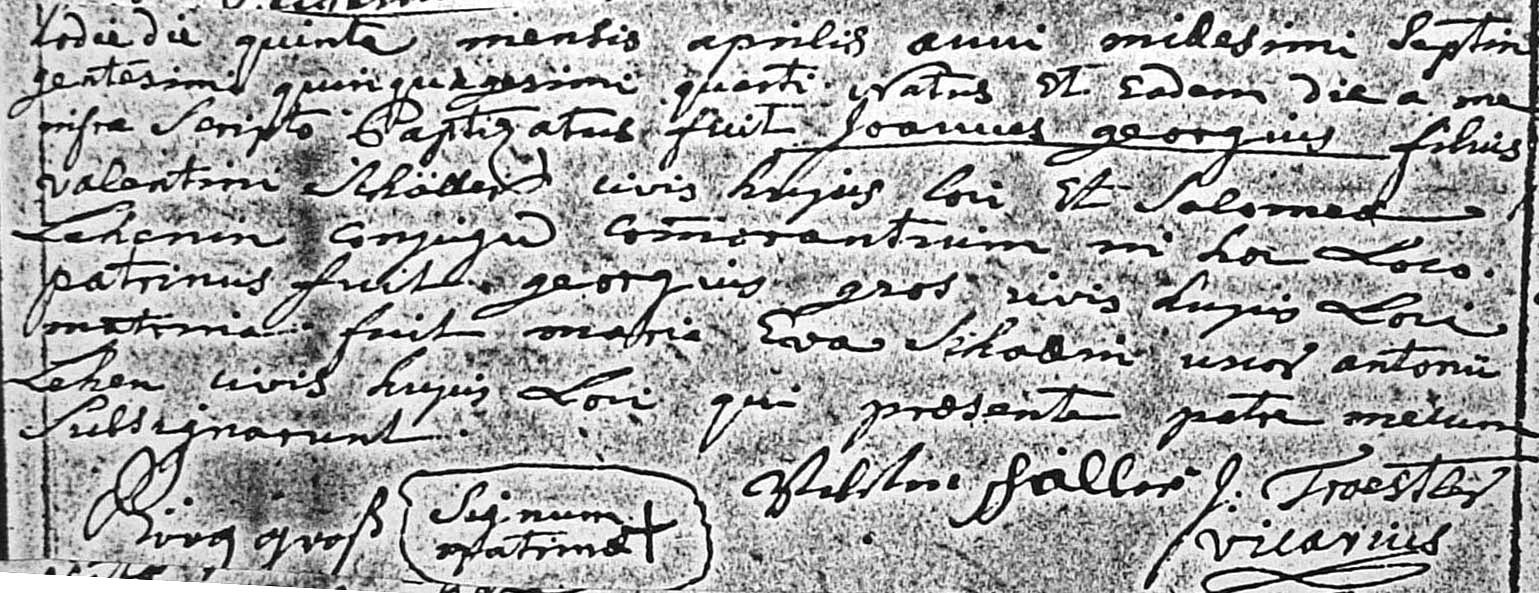 hodie die quinta mensis aprilis anni millesimi Septin
gentesimi quinquagesimi quarti Natus Et Eadem die a me
infra Scripto Baptizatus fuit Joannes georgius filius
valentini Schaller civis hujus loci Et Salomea
Lehenin conjugu comorantium in hoc Loco.
patrinus fuit georgius gros civis hujus Loci
matrina fuit maria Eva Schadin uxor antonii
Lehen civis hujus Loci qui præsente patre mecum
Subsignarunt.
Görg groß Signum matrinæ + schaller J. Troestler
vicarius